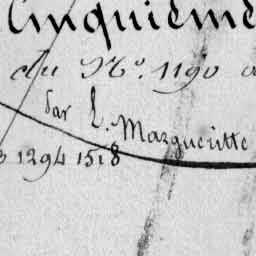 Cinquième
du N.o 1190
par L. Margueritte
3 1294 1518